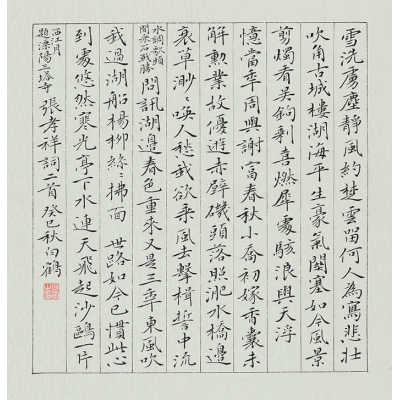 雪洗虜塵靜風約楚雲留何人為寫悲壯
吹角古城樓湖海平生豪氣關塞如今風景
剪燭看吳鉤剩喜燃犀處駭浪與天浮
憶當年周與謝富春秋小喬初嫁香囊未
解勳業故優遊赤壁磯頭落照淝水橋邊
衰草渺〻喚人愁我欲乘風去擊楫誓中流
水調歌頭
聞采石戰勝
問訊湖邊春色重來又是三年東風吹
我過湖船楊柳絲〻拂面 世路如今已慣此心
到處悠然寒光亭下水連天飛起沙鷗一片
西江月
題溧陽三塔寺
張孝祥詞二首 癸巳秋白鶴